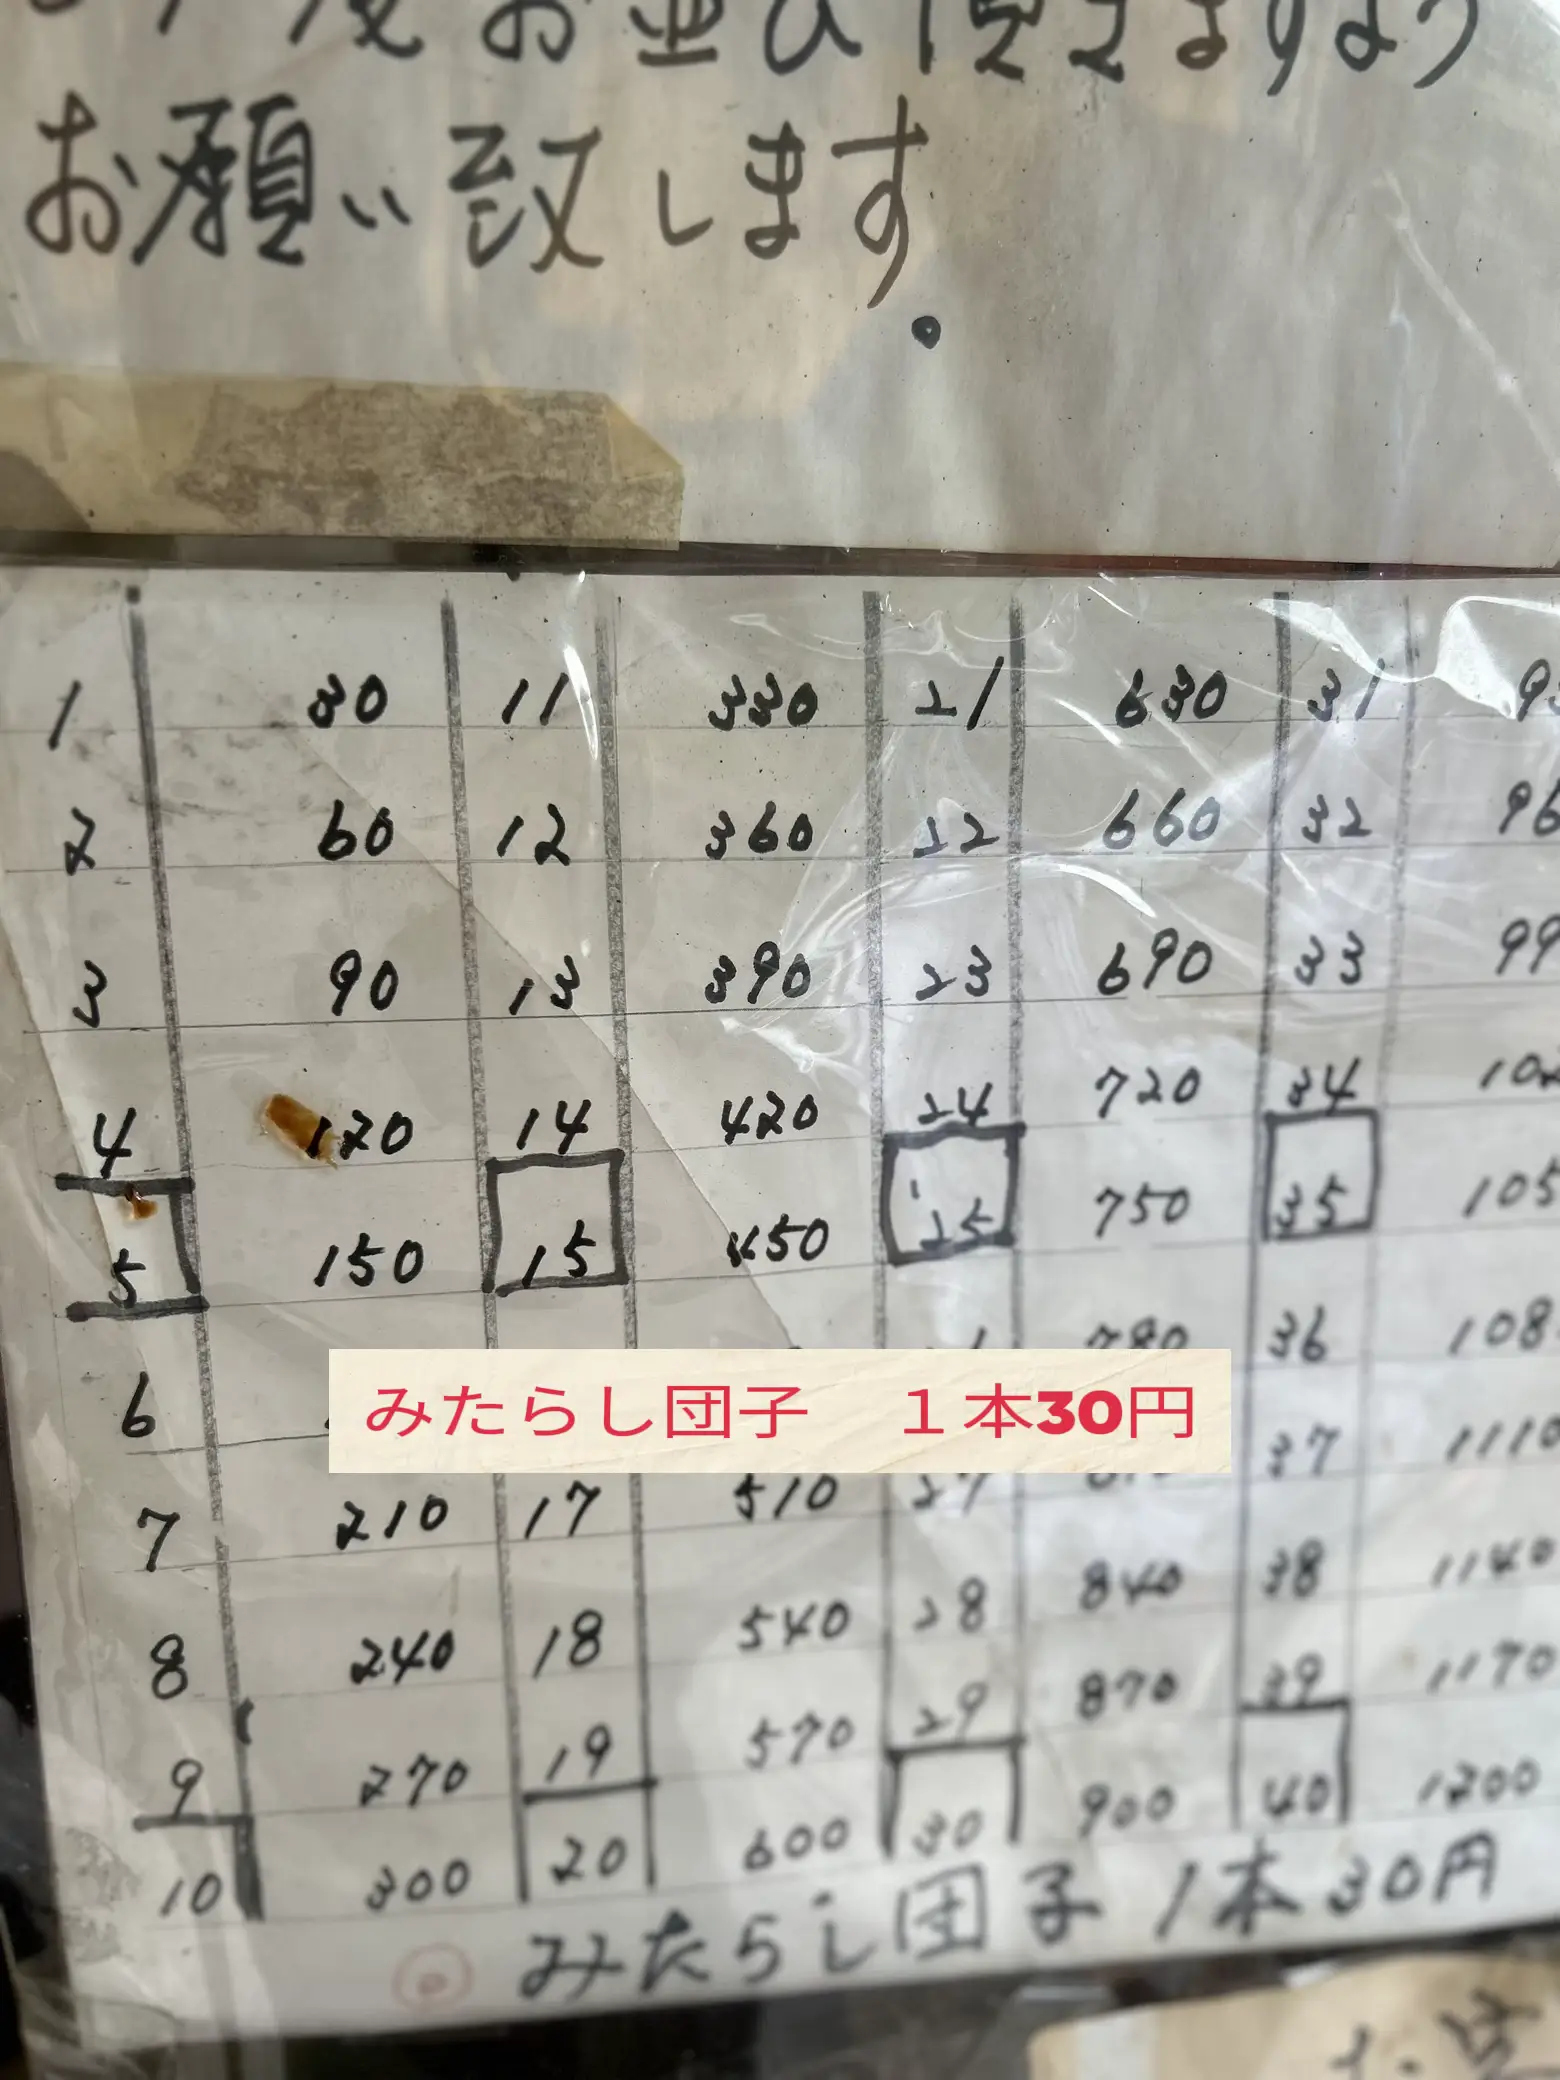 お並び頂きますよう
お願い致します。
1 30 11 330 21 630 31
2 60 12 360 22 660 32
3 90 13 390 23 690 33
4 120 14 420 24 720 34
5 150 15 450 25 750 35
6 780 36
みたらし団子 1本30円
7 210 17 510 27 37 1110
8 240 18 540 28 840 38 1140
9 270 19 570 29 870 39 1170
10 300 20 600 30 900 40 1200
みたらし団子 1本30円